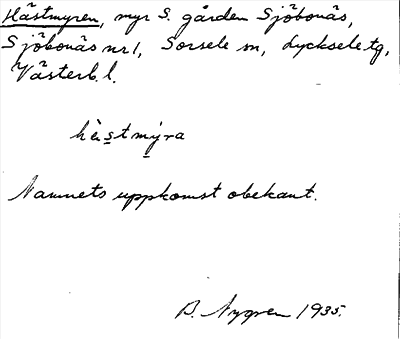 Hästmyren, myr S. gården Sjöbonäs,
Sjöbonäs nr 1, Sorsele sn, Lycksele tg,
Västerb. l.
hästmýra
Namnets uppkomst obekant.
B. Nygren 1935.